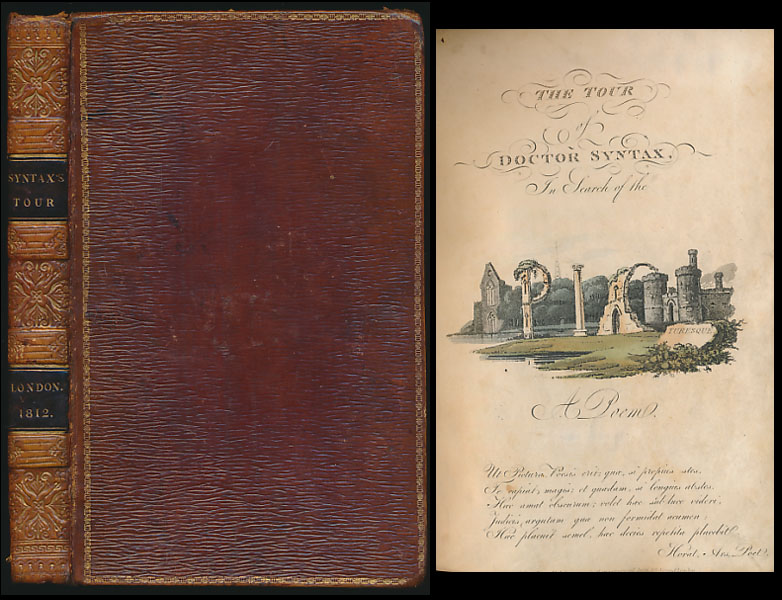 SYNTAX'S
TOUR
LONDON.
1812.
THE TOUR
of
DOCTOR SYNTAX,
In Search of the
PIC
TURESQUE
A Poem.
Ut Pictura, Poesis erit; quæ, si propius stes,
Te capiat, magis; et quædam, si longius abstes.
Hæc amat obscurum; volet hæc sub luce videri,
Judicis argutum quæ non formidat acumen:
Hæc placuit semel, hæc decies repetita placebit.
Horat. Ars. Poet.